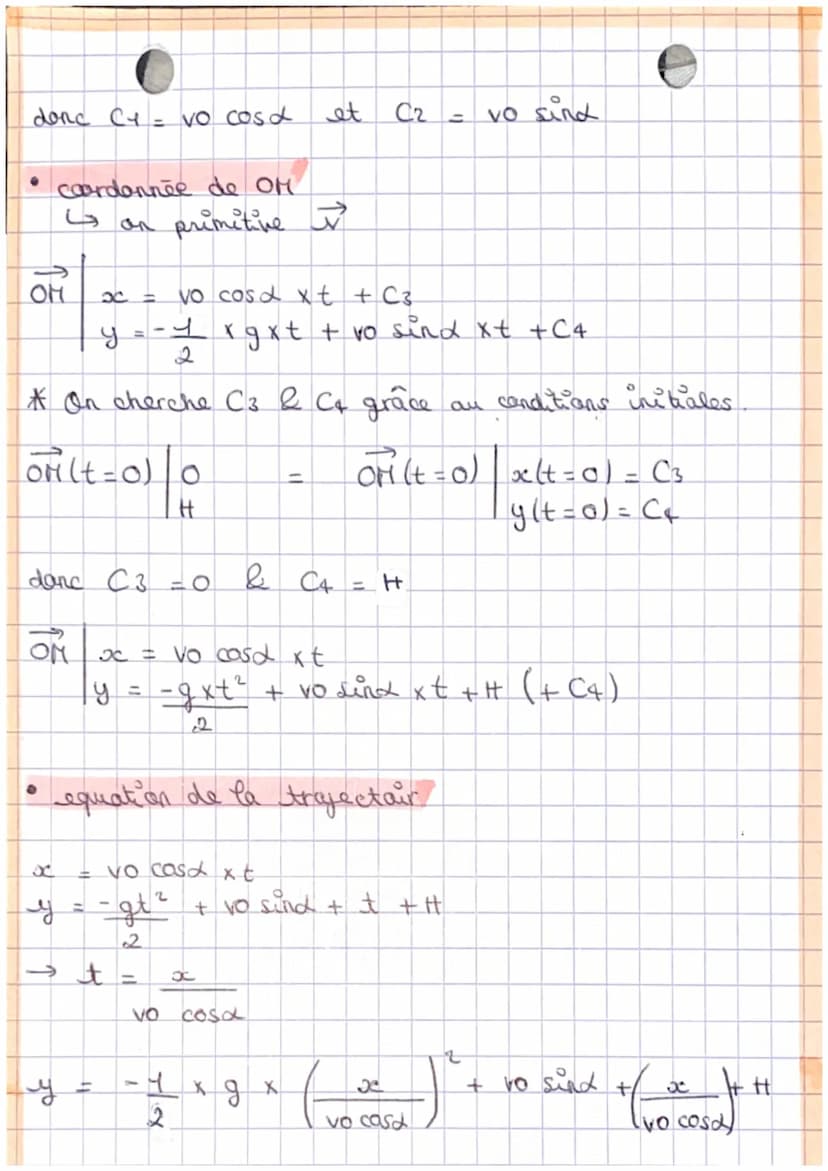 donc C1 = v0 cosα et C2 = v0 sinα
• coordonnée de OM
↳ on primitive v⃗
OM⃗ | x = v0 cosα × t + C3
y = -1/2 × g × t + v0 sinα × t + C4
* On cherche C3 & C4 grâce au conditions initiales.
OM⃗(t=0) | 0 = OM⃗(t=0) | x(t=0) = C3
H y(t=0) = C4
donc C3 = 0 & C4 = H
OM⃗ | x = v0 cosα × t
y = -g×t²/2 + v0 sinα × t + H (+ C4)
• equation de la trajectoir
x = v0 cosα × t
y = -gt²/2 + v0 sinα + t + H
→ t = x/(v0 cosα)
y = -1/2 × g × (x/(v0 cosα))² + v0 sinα + (x/(v0 cosα)) + H